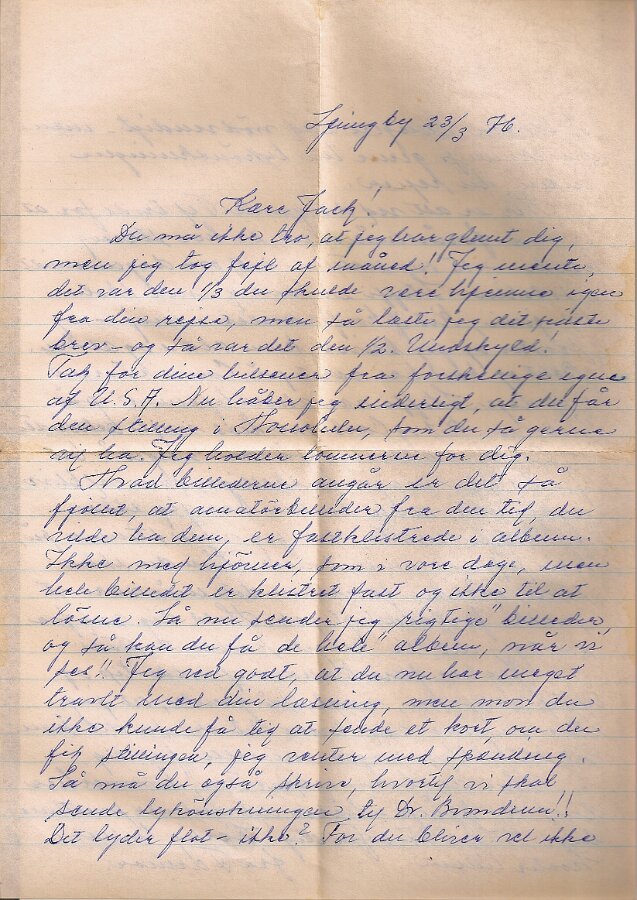 Lyngby 23/3 76.
Kære Jack!
Du må ikke tro, at jeg har glemt dig,
men jeg tog fejl af måned! Jeg mente,
det var den 1/3 du skulde være hjemme igen
fra din rejse, men så læste jeg dit sidste
brev – og så var det den 1/2. Undskyld!
Tak for dine hilsener fra forskellige egne
af U.S.A. Nu håber jeg inderligt, at du får
den stilling i Honolulu, som du så gerne
vil ha. Jeg holder tommerne for dig.
Hvad billederne angår er det så
fjollet, at amatörbilleder fra den tid, du
vilde ha dem, er fastklistrede i album.
Ikke med hjörner, som i vore dage, men
hele billedet er klistret fast og ikke til at
løsne. Så nu sender jeg "rigtige" billeder,
og så kan du få de hele album, når vi
ses!! Jeg ved godt, at du nu har meget
travlt med din læsning, men mon du
ikke kunde få tid at sende et kort, om du
fik stillingen, jeg venter med spænding.
Så må du også skrive, hvortil vi skal
sende lykönskningen til Dr.
Det lyder flot – ikke? For du bliver vel ikke